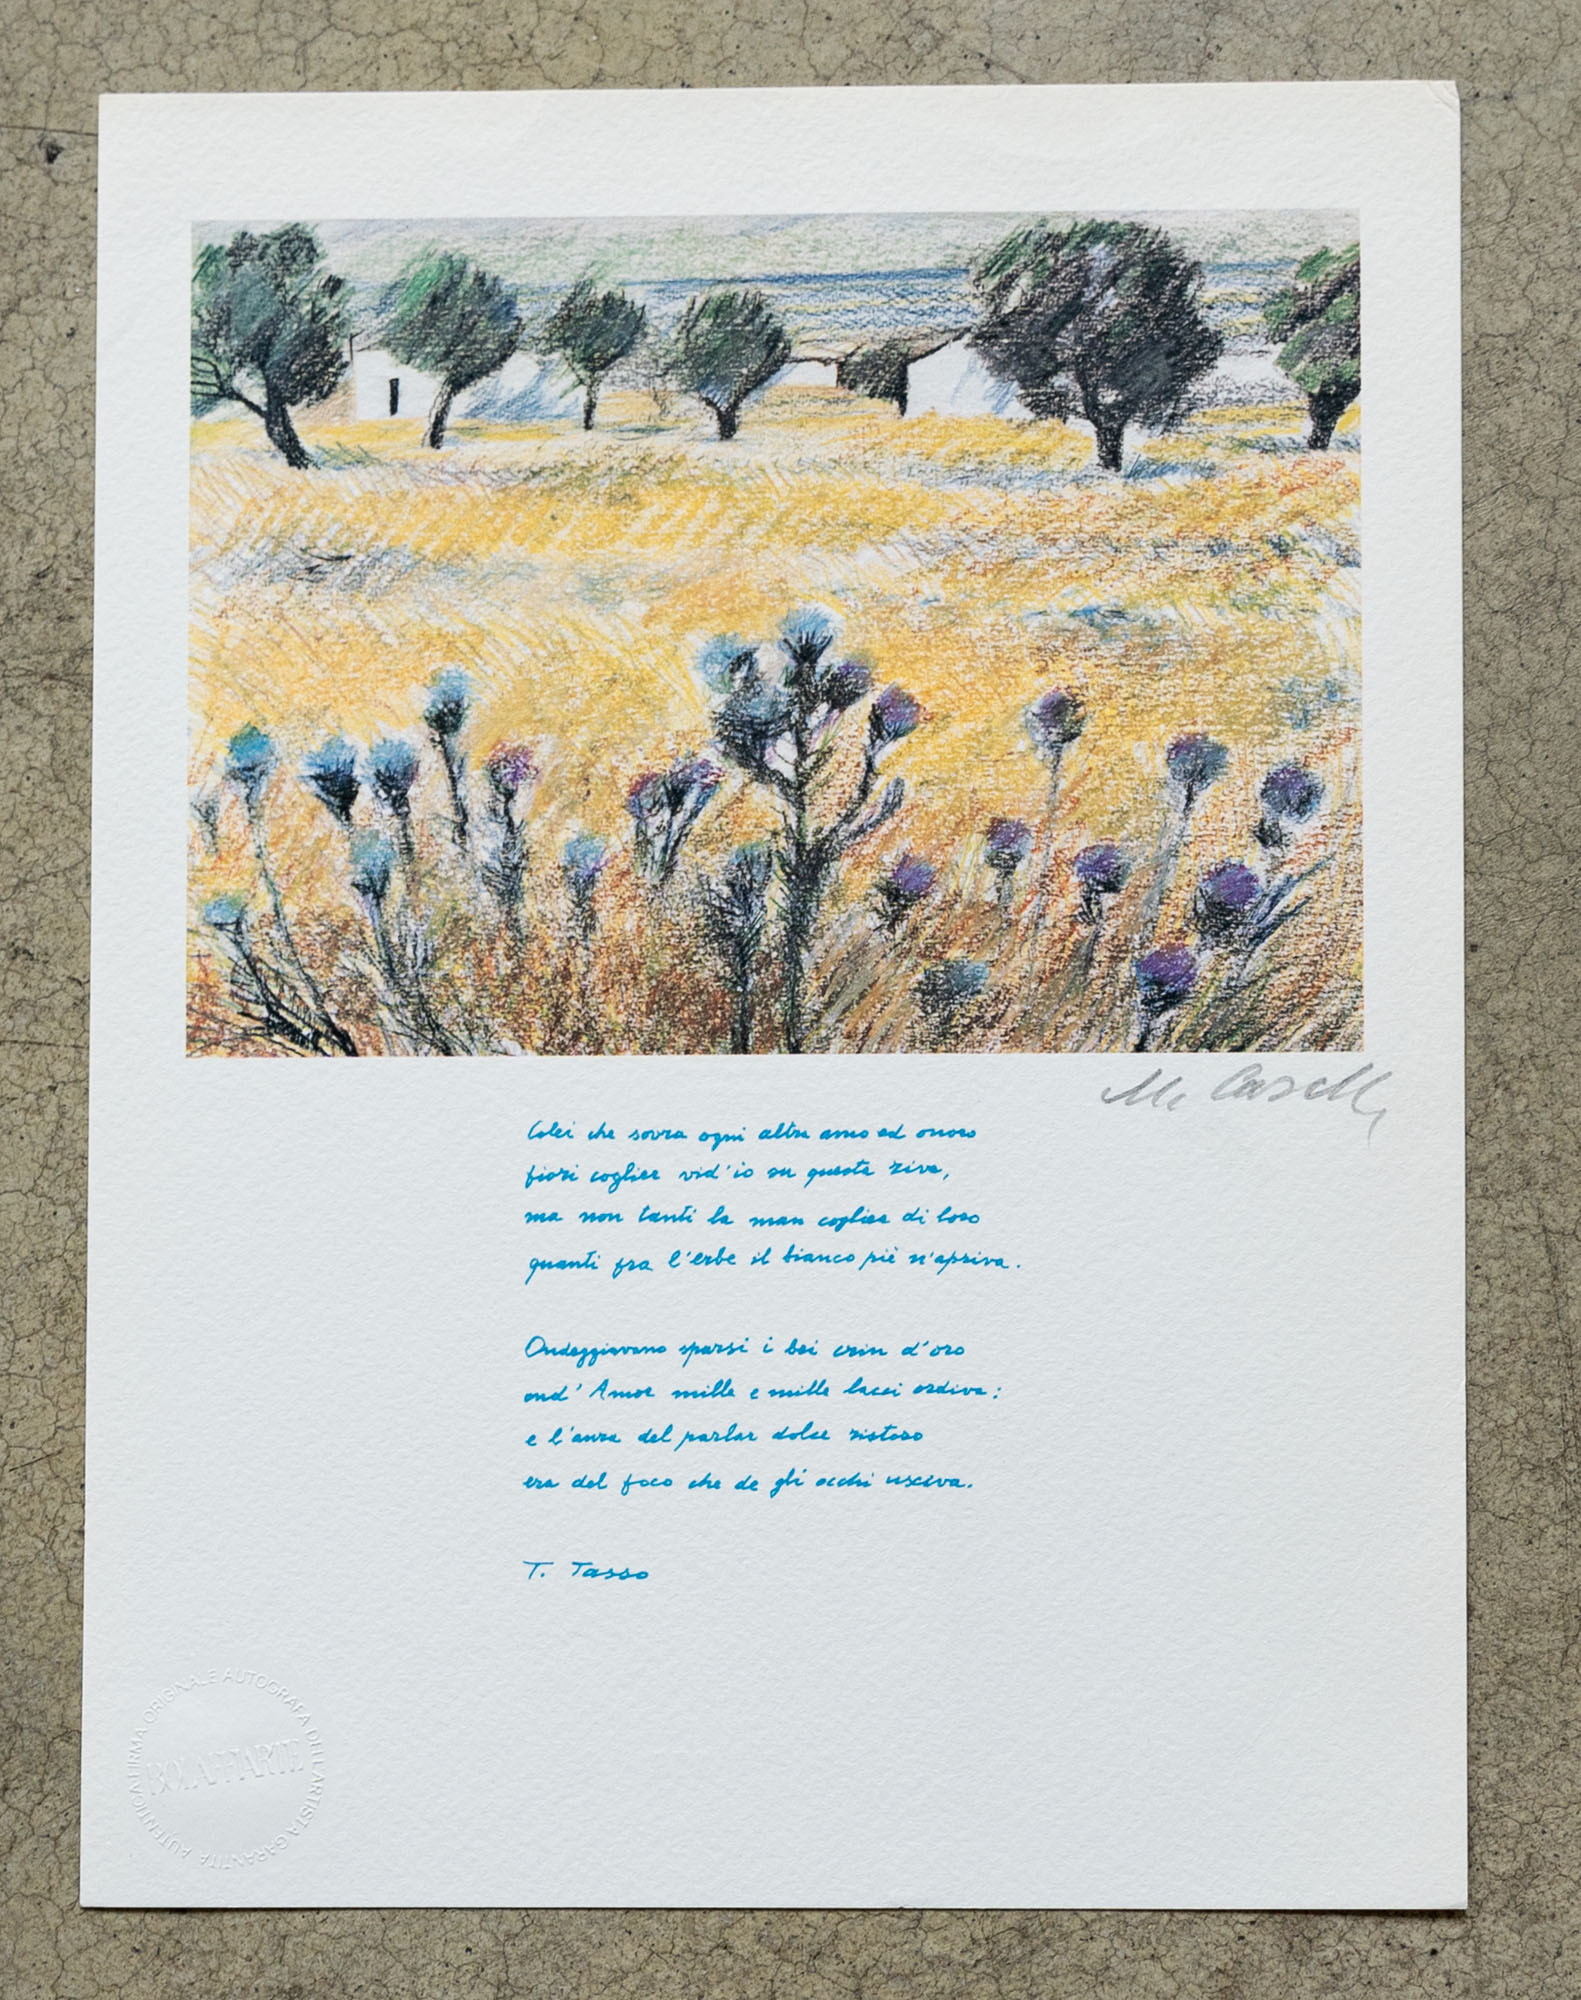 M. Caselli
Colei che sovra ogni altra amo ed onoro
fiori coglier vid'io su questa riva,
ma non tanti la man coglier di loro
quanti fra l'erbe il bianco piè n'apriva.
Ondeggiavano sparsi i bei crin d'oro
ond'Amor mille e mille lacci ordiva;
e l'aura del parlar dolce ristoro
era del foco che de gli occhi usciva.
T. Tasso
AUTENTICA FIRMA ORIGINALE AUTOGRAFA DELL'ARTISTA GARANTITA
BOLAFFIARTE